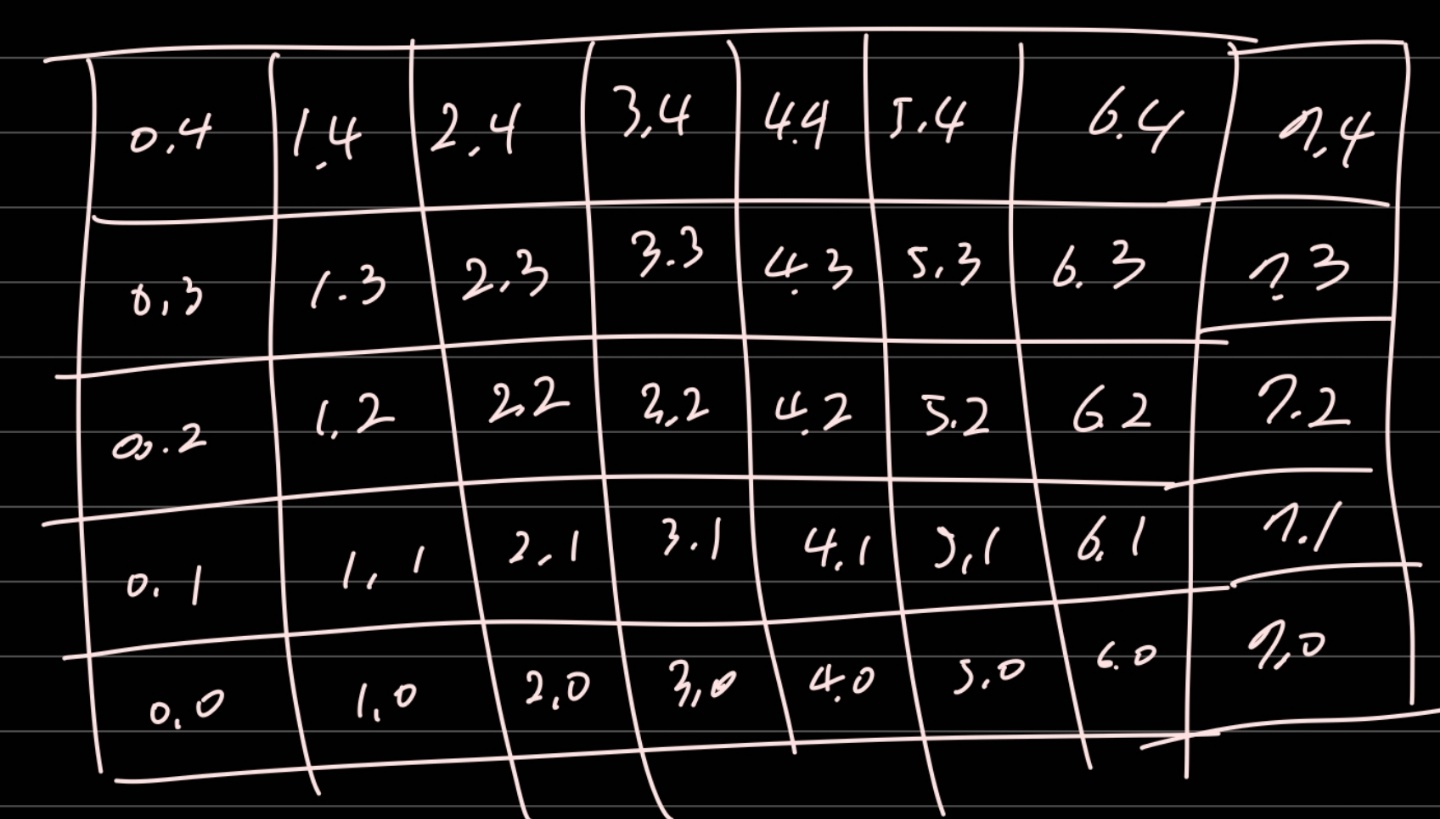 0,4 1,4 2,4 3,4 4.4 5.4 6.4 7,4
0,3 1.3 2,3 3.3 4.3 5,3 6.3 7.3
0.2 1,2 2.2 3,2 4.2 5.2 6.2 7.2
0.1 1,1 2,1 3.1 4,1 5,1 6,1 7.1
0,0 1,0 2,0 3,0 4.0 5.0 6.0 7,0